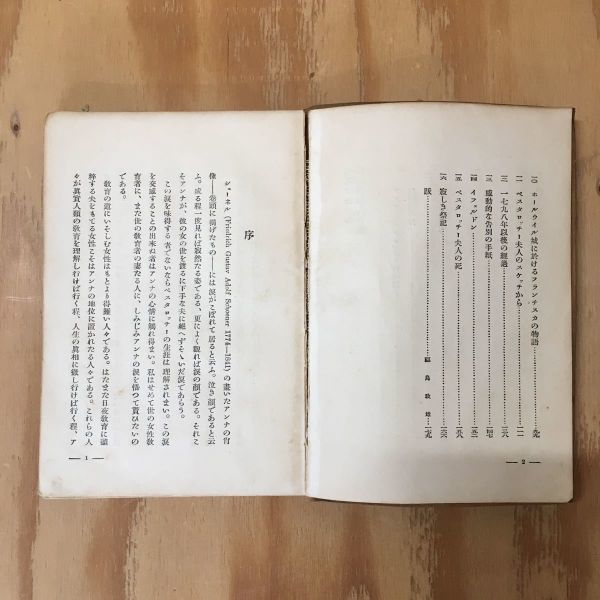 一〇 ホールウイル城に於けるフランチスカの物語
一一 ペスタロッチー夫人のスケッチから
一二 一七九八年以後の經過
一三 感動的な告別の手紙
一四 イフェルドン
一五 ペスタロッチー夫人の死
一六 寂しき祭記
跋 福島政雄
— 2 —
序
シェーネル (Friedrich Gustav Adolf Schoener 1774—1841) の畫いたアンナの肖
像——卷頭に揭げたもの——には淚がこぼれて居ると云ふ。泣き顏であると云
ふ。成る程一度見れば寂然たる姿である、更によく觀れば淚の顏である。それこ
そアンナが、彼の女の世を渡るに下手な夫に絕へずそゝいだ淚であらう。
この淚を味得する者でないならペスタロッチーの生涯は理解されまい。この淚
を交感することの出來ぬ者はアンナの心情に觸れ得まい。私はせめて世の女性敎
育者に、また世の敎育者の妻たる人に、しみじみアンナの淚を悟つて貰ひたいの
である。
敎育の道にいそしむ女性はもとより得難い人々である。はたまた日夜敎育に盡
瘁する夫をもてる女性こそはアンナの地位に置かれたる人々である。これらの人
々が眞實人類の敎育を理解し行けば行く程、人生の眞相に徹し行けば行く程、ア
— 1 —